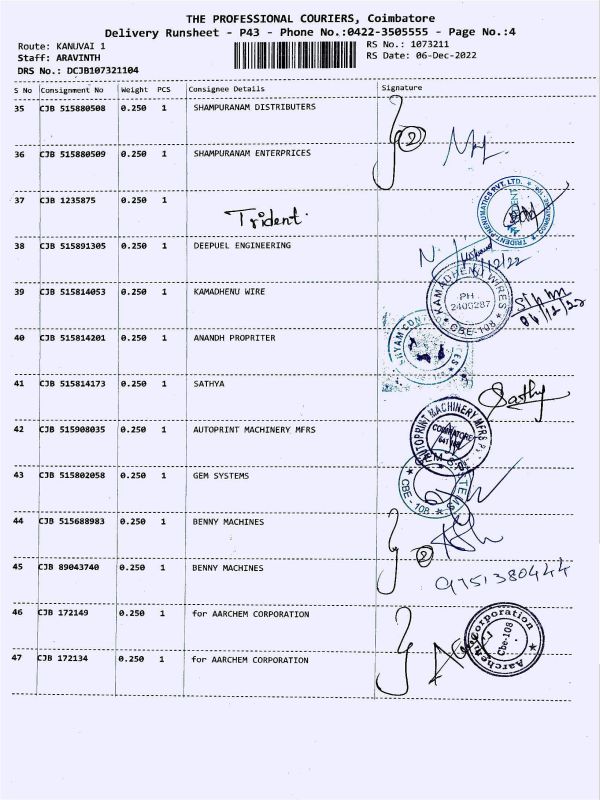 THE PROFESSIONAL COURIERS, Coimbatore
Delivery Runsheet - P43 - Phone No.:0422-3505555 - Page No.:4
Route: KANUVAI 1
RS No.: 1073211
Staff: ARAVINTH
RS Date: 06-Dec-2022
DRS No.: DCJB107321104
S No Consignment No Weight PCS Consignee Details Signature
35 CJB 515880508 0.250 1 SHAMPURANAM DISTRIBUTERS
2
36 CJB 515880509 0.250 1 SHAMPURANAM ENTERPRICES
37 CJB 1235875 0.250 1
Trident.
TRIDENT PNEUMATICS PVT. LTD.
38 CJB 515891305 0.250 1 DEEPUEL ENGINEERING
12/22
39 CJB 515814053 0.250 1 KAMADHENU WIRE
KAMADHENU WIRES
PH
2400287
CBE-108
04/12/22
40 CJB 515814201 0.250 1 ANANDH PROPRITER
41 CJB 515814173 0.250 1 SATHYA
Sathy
42 CJB 515908035 0.250 1 AUTOPRINT MACHINERY MFRS
AUTOPRINT MACHINERY MFRS
COIMBATORE
43 CJB 515802058 0.250 1 GEM SYSTEMS
CBE-108
44 CJB 515688983 0.250 1 BENNY MACHINES
2
45 CJB 89043740 0.250 1 BENNY MACHINES
9751380444
46 CJB 172149 0.250 1 for AARCHEM CORPORATION
Aarchem Corporation
Cbe-108
47 CJB 172134 0.250 1 for AARCHEM CORPORATION